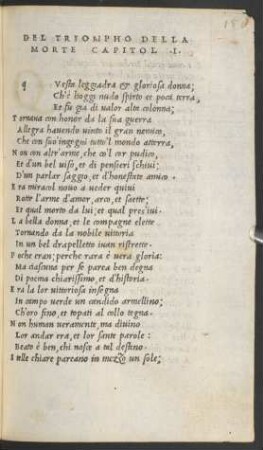 DEL TRIOMPHO DELLA
MORTE CAPITOL .I.
q Vesta leggiadra & gloriosa donna;
Ch'è hoggi nudo spirto et poca terra,
Et fu gia di valor alta colonna;
Tornaua con honor da la sua guerra
Allegra hauendo uinto il gran nemico,
Che con suo'ingegni tutto'l mondo atterra,
Non con altr'arme, che co'l cor pudico,
Et d'un bel uiso, et di pensieri schiui;
D'un parlar saggio, et d'honestate amico.
Era miracol nouo a ueder quiui
Rotte l'arme d'amor, arco, et saette;
Et qual morto da lui, et qual pres'iui.
La bella donna, et le compagne elette
Tornando da la nobile uittoria
In un bel drapelletto iuan ristrette.
Poche eran; perche rara è uera gloria:
Ma ciascuna per se parea ben degna
Di poema chiarissimo, et d'historia.
Era la lor uittoriosa insegna
In campo verde un candido armellino;
Ch'oro fino, et topati al collo tegna.
Non human ueramente, ma diuino
Lor andar era, et lor sante parole:
Beato è ben, chi nasce a tal destino.
Stelle chiare pareano in mezzo un sole;